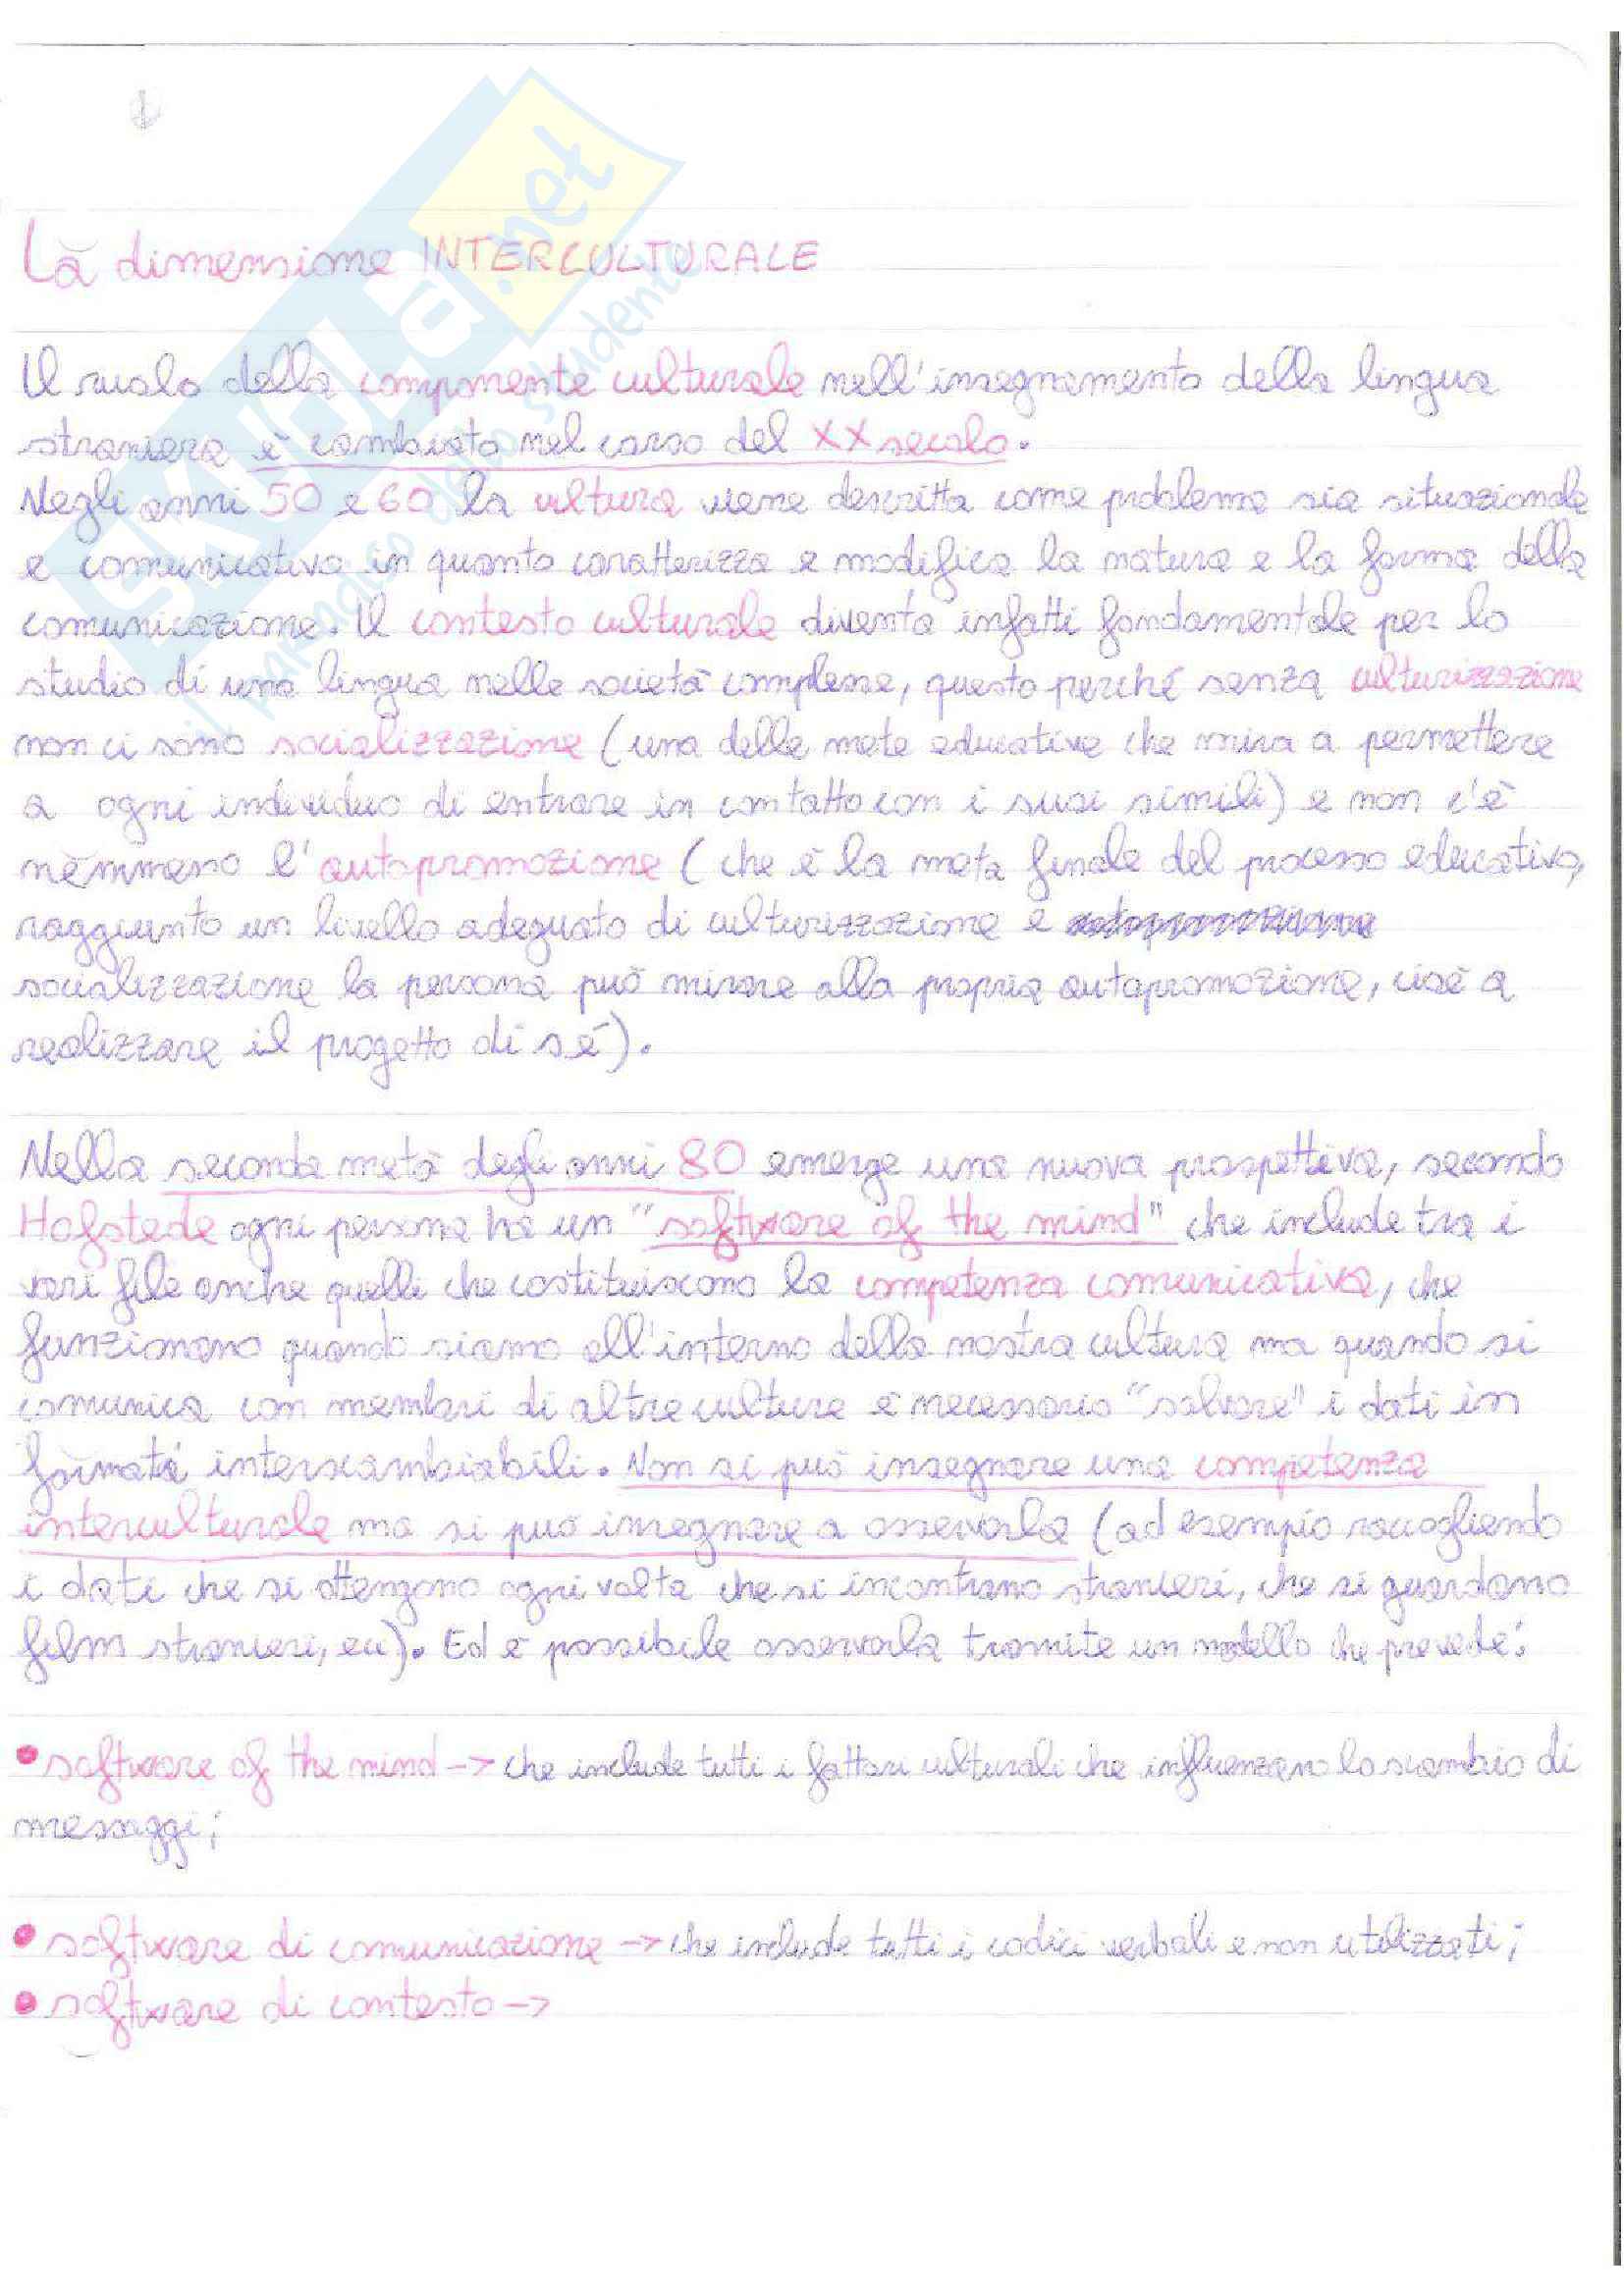 La dimensione INTERCULTURALE
Il ruolo della componente culturale nell'insegnamento della lingua
straniera è cambiato nel corso del XX secolo.
Negli anni 50 e 60 la cultura viene descritta come problema sia situazionale
e comunicativo in quanto caratterizza e modifica la natura e la forma della
comunicazione. Il contesto culturale diventa infatti fondamentale per lo
studio di una lingua nelle società complesse, questo perché senza culturizzazione
non ci sono socializzazione (una delle mete educative che mira a permettere
a ogni individuo di entrare in contatto con i suoi simili) e non c'è
nemmeno l'autopromozione (che è la meta finale del processo educativo,
raggiunto un livello adeguato di culturizzazione e
socializzazione la persona può mirare alla propria autopromozione, cioè a
realizzare il progetto di sé).
Nella seconda metà degli anni 80 emerge una nuova prospettiva, secondo
Hofstede ogni persona ha un "software of the mind" che include tra i
vari file anche quelli che costituiscono la competenza comunicativa, che
funzionano quando siamo all'interno della nostra cultura ma quando si
comunica con membri di altre culture è necessario "salvare" i dati in
formati interscambiabili. Non si può insegnare una competenza
interculturale ma si può insegnare a osservarla (ad esempio raccogliendo
i dati che si ottengono ogni volta che si incontrano stranieri, che si guardano
film stranieri, ecc). Ed è possibile osservarla tramite un modello che prevede:
• software of the mind -> che include tutti i fattori culturali che influenzano lo scambio di
messaggi;
• software di comunicazione -> che include tutti i codici verbali e non utilizzati;
• software di contesto ->
SKUOLA.net
il paradiso dello studente